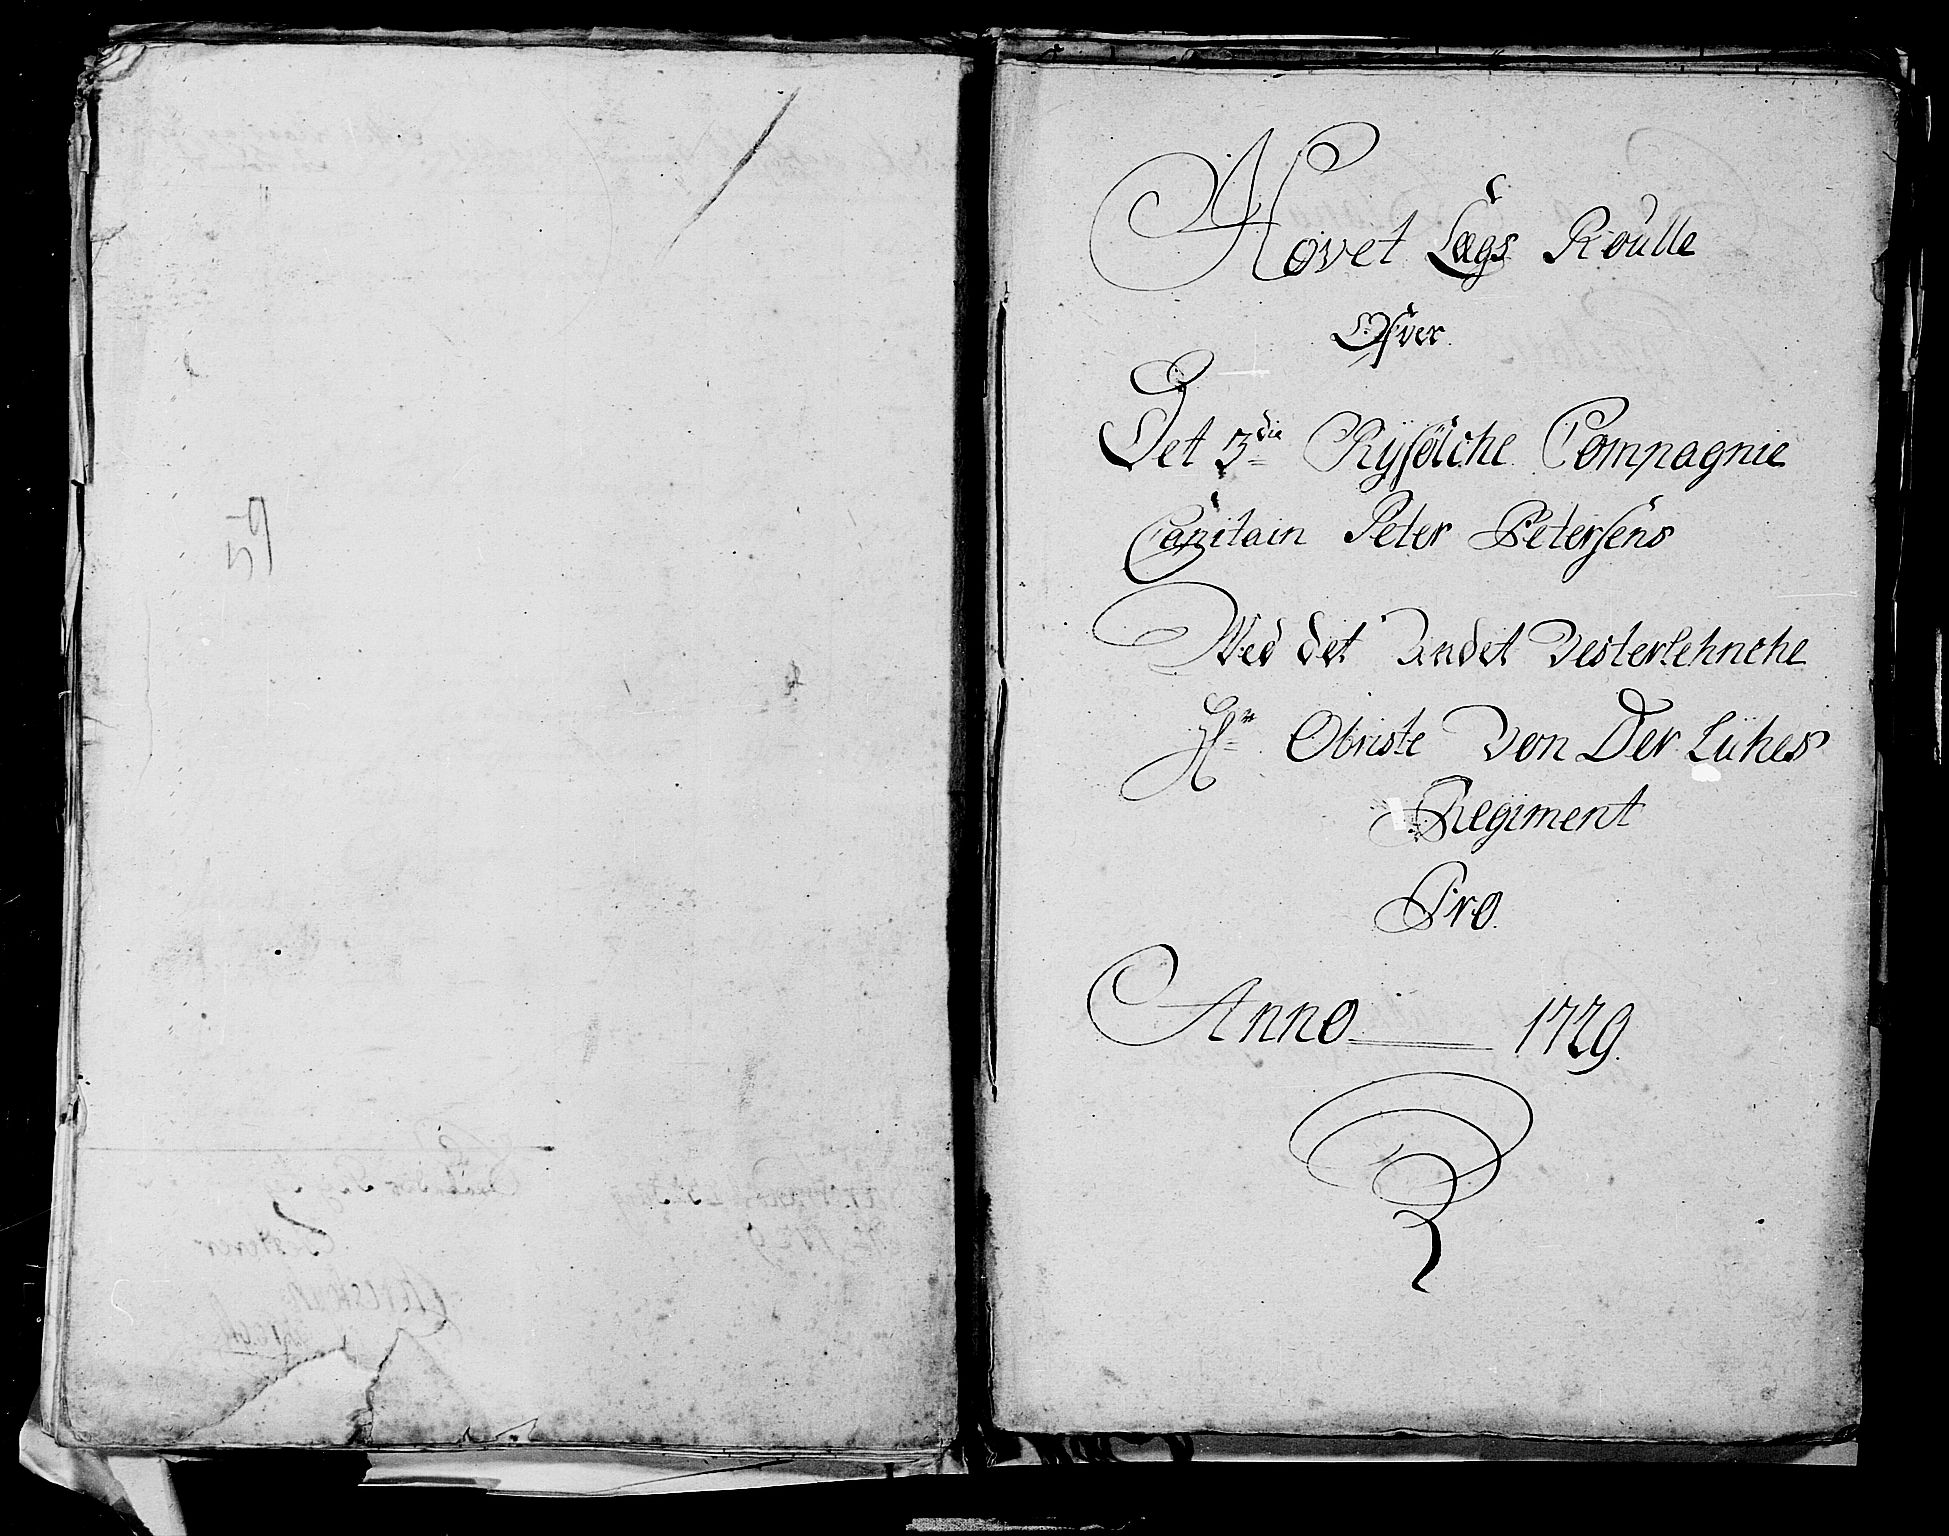 59
Hovet Lægs Roulle
Ofver
Det 3die Ryfölche Compagnie
Capitain Peter Petersens
Ved det Andet Vesterlehnche
Hr Obriste Von Der Lühes
Regiment
Pro.
Anno 1729.